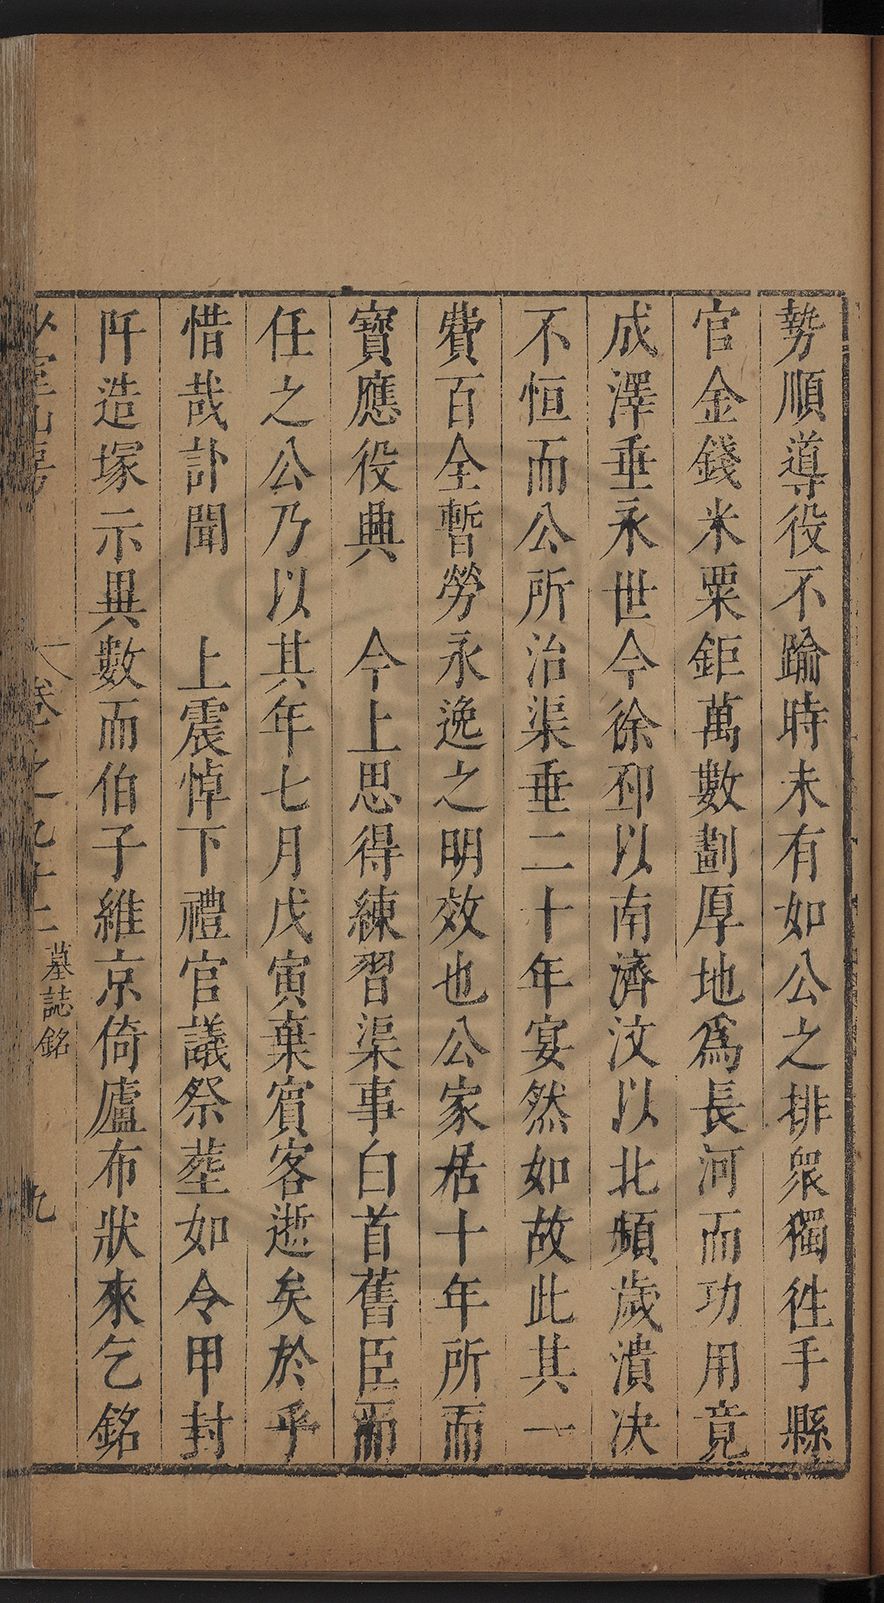 勢順導役不踰時未有如公之排衆獨徃手縣
官金錢米粟鉅萬數劃厚地爲長河而功用竟
成澤垂永世今徐邳以南濟汶以北頻歲潰决
不恒而公所治渠垂二十年宴然如故此其一
費百全暫勞永逸之明效也公家居十年所而
寶應役興　今上思得練習渠事白首舊臣而
任之公乃以其年七月戊寅棄賓客逝矣於乎
惜哉訃聞　上震悼下禮官議祭葬如令甲封
阡造塚示異數而伯子維京倚廬布狀來乞銘
少室山房　卷之九十二　墓誌銘　九